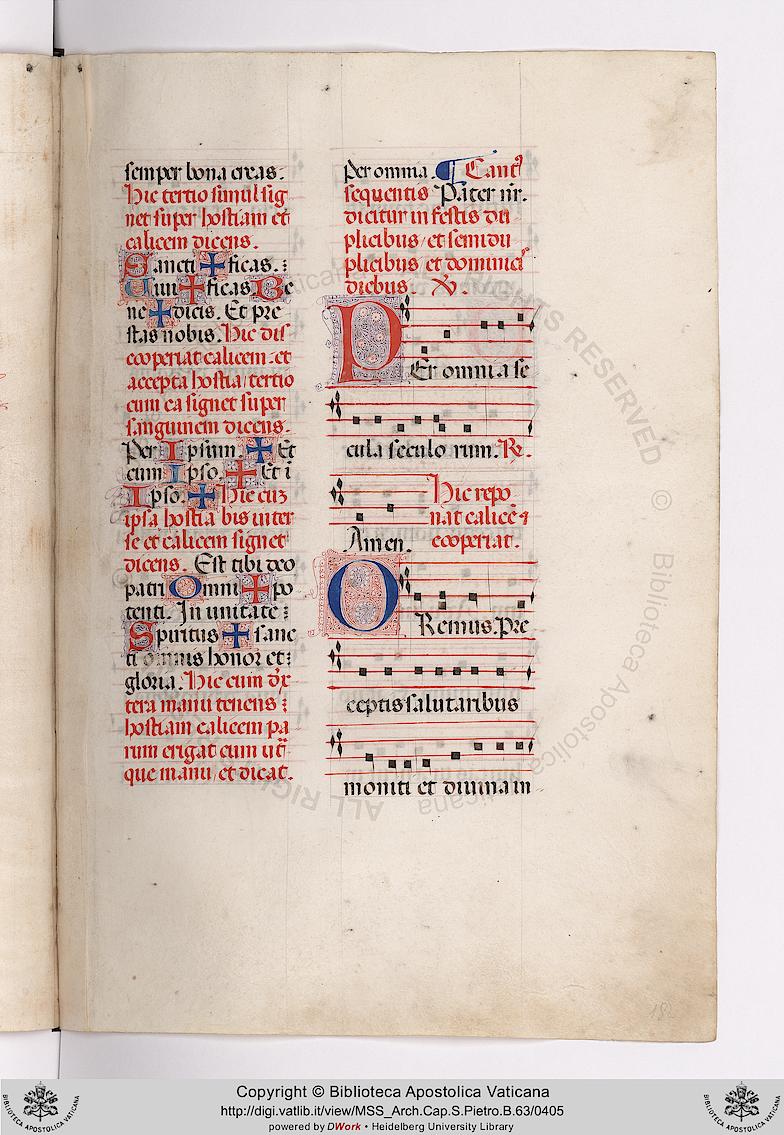 semper bona creas.
Hic tertio simul sig
net super hostiam et
calicem dicens.
Sancti ✠ ficas.
Uiui ✠ ficas. Be
ne ✠ dicis. Et pre
stas nobis. Hic dis
cooperiat calicem et
accepta hostia tertio
cum ea signet super
sanguinem dicens.
Per Ipsum. ✠ Et
cum ipso. ✠ Et ī
Ipso. ✠ Hic cuꝫ
ipsa hostia bis inter
se et calicem signet
dicens. Est tibi deo
patri Omni ✠ po
tenti. In unitate
Spiritus ✠ sanc
ti omnis honor et
gloria. Hic cum dx̄
tera manu tenens
hostiam calicem pa
rum erigat cum utͣ
que manu et dicat.
Per omnia. ¶ Cantꝰ
sequentis Pater nr̄.
dicitur in festis du
plicibus et semidu
plicibus et dominicͥ
diebus. ℣.
PEr omnia se
cula seculo rum. R̷.
Hic repo
nat calicē ⁊
Amen. cooperiat.
ORemus. Pre
ceptis salutaribus
moniti et diuina in
182
ALL RIGHTS RESERVED © Biblioteca Apostolica Vaticana
Copyright © Biblioteca Apostolica Vaticana
http://digi.vatlib.it/view/MSS_Arch.Cap.S.Pietro.B.63/0405
powered by DWork • Heidelberg University Library
BIBLIOTECA APOSTOLICA VATICANA
BIBLIOTECA APOSTOLICA VATICANA